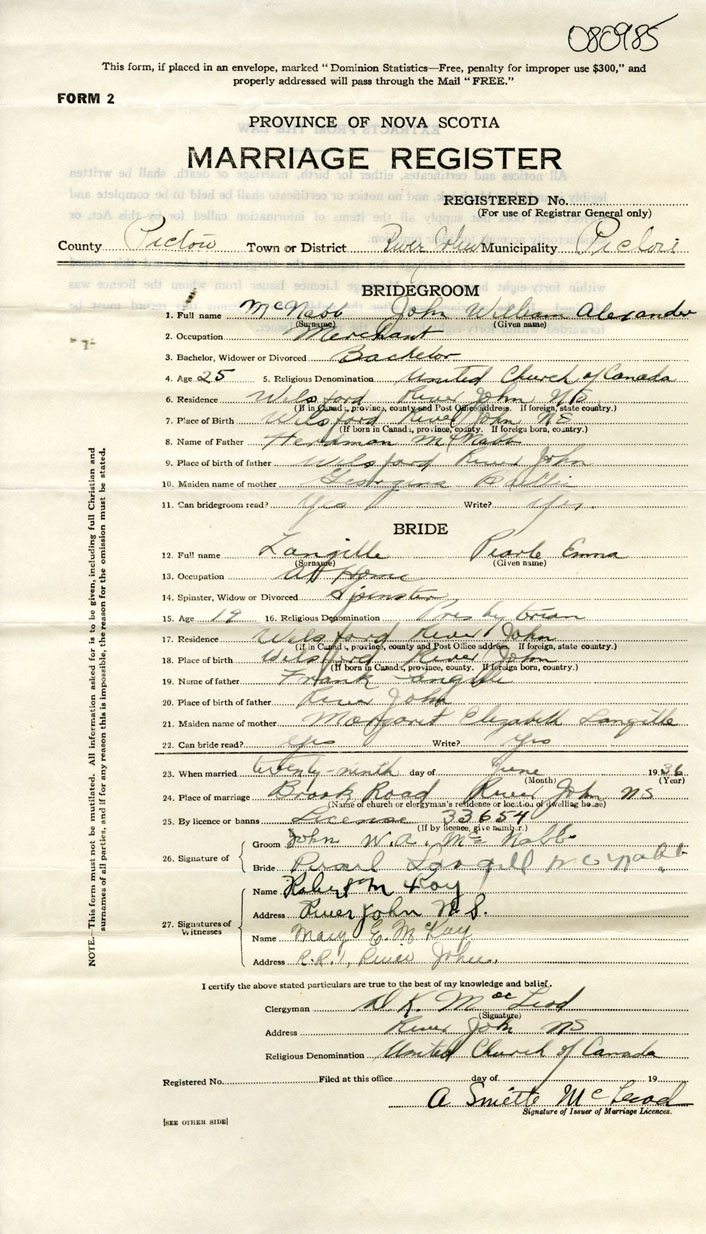 080985
This form, if placed in an envelope, marked "Dominion Statistics—Free, penalty for improper use $300," and
properly addressed will pass through the Mail "FREE."
FORM 2
PROVINCE OF NOVA SCOTIA
MARRIAGE REGISTER
REGISTERED No.
(For use of Registrar General only)
County Pictou Town or District River John Municipality Pictou
BRIDEGROOM
1. Full name McNabb John William Alexander
(Surname) (Given name)
2. Occupation Merchant
3. Bachelor, Widower or Divorced Bachelor
4. Age 25 5. Religious Denomination United Church of Canada
6. Residence Welsford River John NS
(If in Canada, province, county and Post Office address. If foreign, state country.)
7. Place of Birth Welsford River John NS
(If born in Canada, province, county. If foreign born, country.)
8. Name of Father McNabb
9. Place of birth of father Welsford River John
10. Maiden name of mother Georgina
11. Can bridegroom read? Yes Write? Yes
BRIDE
12. Full name Langille Pearle Emma
(Surname) (Given name)
13. Occupation At Home
14. Spinster, Widow or Divorced Spinster
15. Age 19 16. Religious Denomination Presbyterian
17. Residence Welsford River John
(If in Canada, province, county and Post Office address. If foreign, state country.)
18. Place of birth Welsford River John
(If born in Canada, province, county. If foreign born, country.)
19. Name of father Frank Langille
20. Place of birth of father River John
21. Maiden name of mother Margaret Elizabeth Langille
22. Can bride read? Yes Write? Yes
23. When married twenty-ninth day of June 1936
(Month) (Year)
24. Place of marriage Brook Road River John NS
(Name of church or clergyman's residence or location of dwelling house)
25. By licence or banns License 33654
(If by licence, give number.)
26. Signature of Groom John W. A. McNabb
Bride Pearl Langill McNabb
27. Signatures of Witnesses
Name Robert M Kay
Address River John N.S.
Name Mary E. McKay
Address R.R.1, River John.
I certify the above stated particulars are true to the best of my knowledge and belief.
Clergyman D. K. MacLeod
(Signature)
Address River John NS
Religious Denomination United Church of Canada
Registered No. Filed at this office day of 19
A McLeod
Signature of Issuer of Marriage Licences.
[SEE OTHER SIDE]
NOTE.—This form must not be mutilated. All information asked for is to be given, including full Christian and
surnames of all parties, and if for any reason this is impossible, the reason for the omission must be stated.